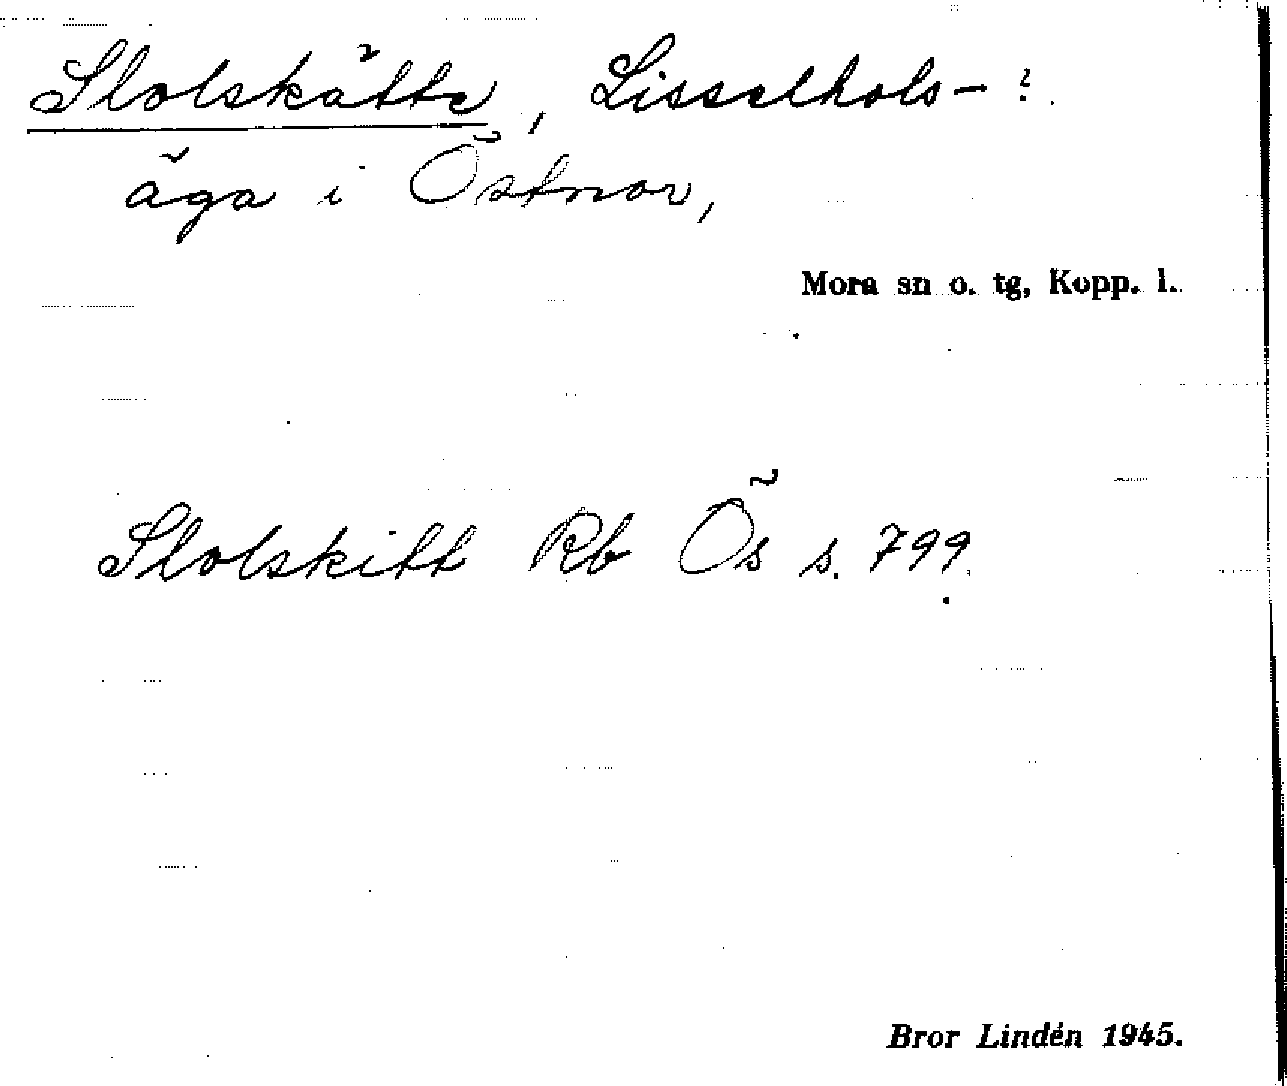 Slolskätte, Lisselhols- ?
äga i Östnor,
Mora sn o. tg, Kopp. l.
Slolskitt Rb Ös s. 799.
Bror Lindén 1945.